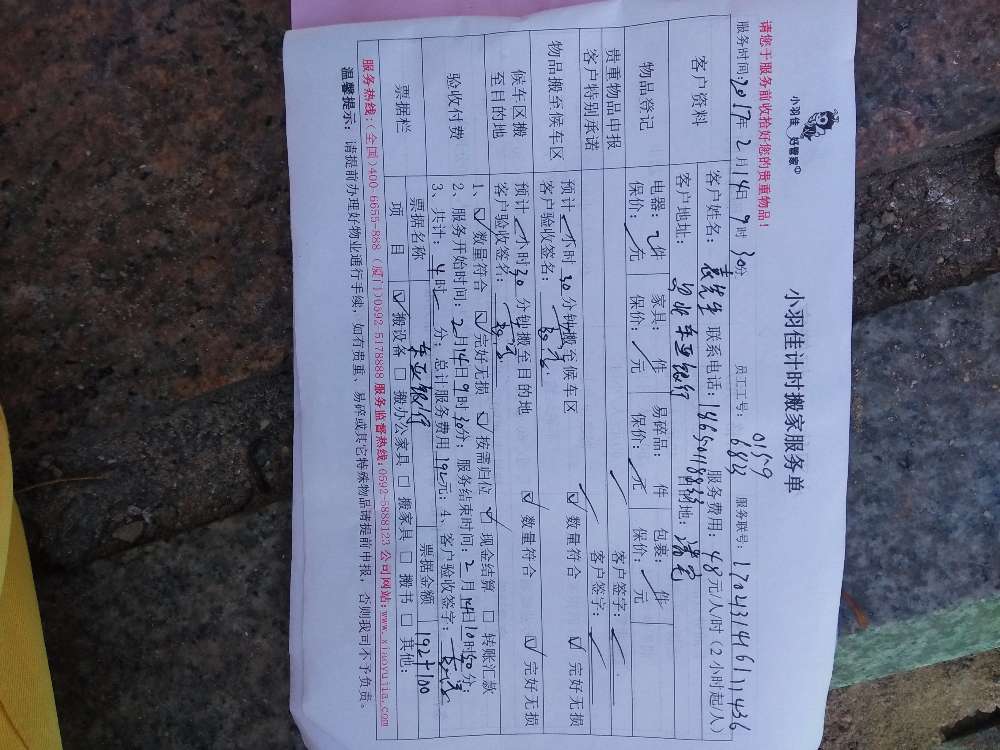 小羽佳 好管家
小羽佳计时搬家服务单
请您于服务前收拾好您的贵重物品!
员工工号: 0159 6822 服务联号: 1704314161111436
服务时间: 2017年 2月 14日 9时 30份 服务费用: 48元/人/时(2小时起/人)
客户资料
客户姓名: 袁先生 联系电话:
客户地址: 东亚银行 目的地:
物品登记
电器: 2件 家具: 件 易碎品: 件 包裹: 件
保价: 元 保价: 元 保价: 元 保价: 元
贵重物品申报 客户签字:
客户特别承诺 客户签字:
物品搬至候车区
预计 小时 30 分钟搬至候车区 ☑ 数量符合 ☑ 完好无损
客户验收签名:
候车区搬至目的地
预计 小时 30 分钟搬至目的地 ☑ 数量符合 ☑ 完好无损
客户验收签名:
验收付费
1、☑ 数量符合 ☑ 完好无损 ☑ 按需归位 ☑ 现金结算 □ 转账汇款
2、服务开始时间: 2月14日9时30分; 服务结束时间: 2月14日10时30分;
3、共计: 4时 分; 总计服务费用192元; 4、客户验收签字:
票据栏
票据名称 东亚银行 票据金额 192+100
项目 ☑ 搬设备 □ 搬办公家具 □ 搬家具 □ 搬书 □ 其他:
服务热线:(全国)400-6655-888 (厦门)0592-5178888 服务监督热线:0592-5888123 公司网站:www.xiaoyujia.com
温馨提示: 请提前办理好物业通行手续, 如有贵重、易碎或其它特殊物品请提前申报, 否则我司不予负责。